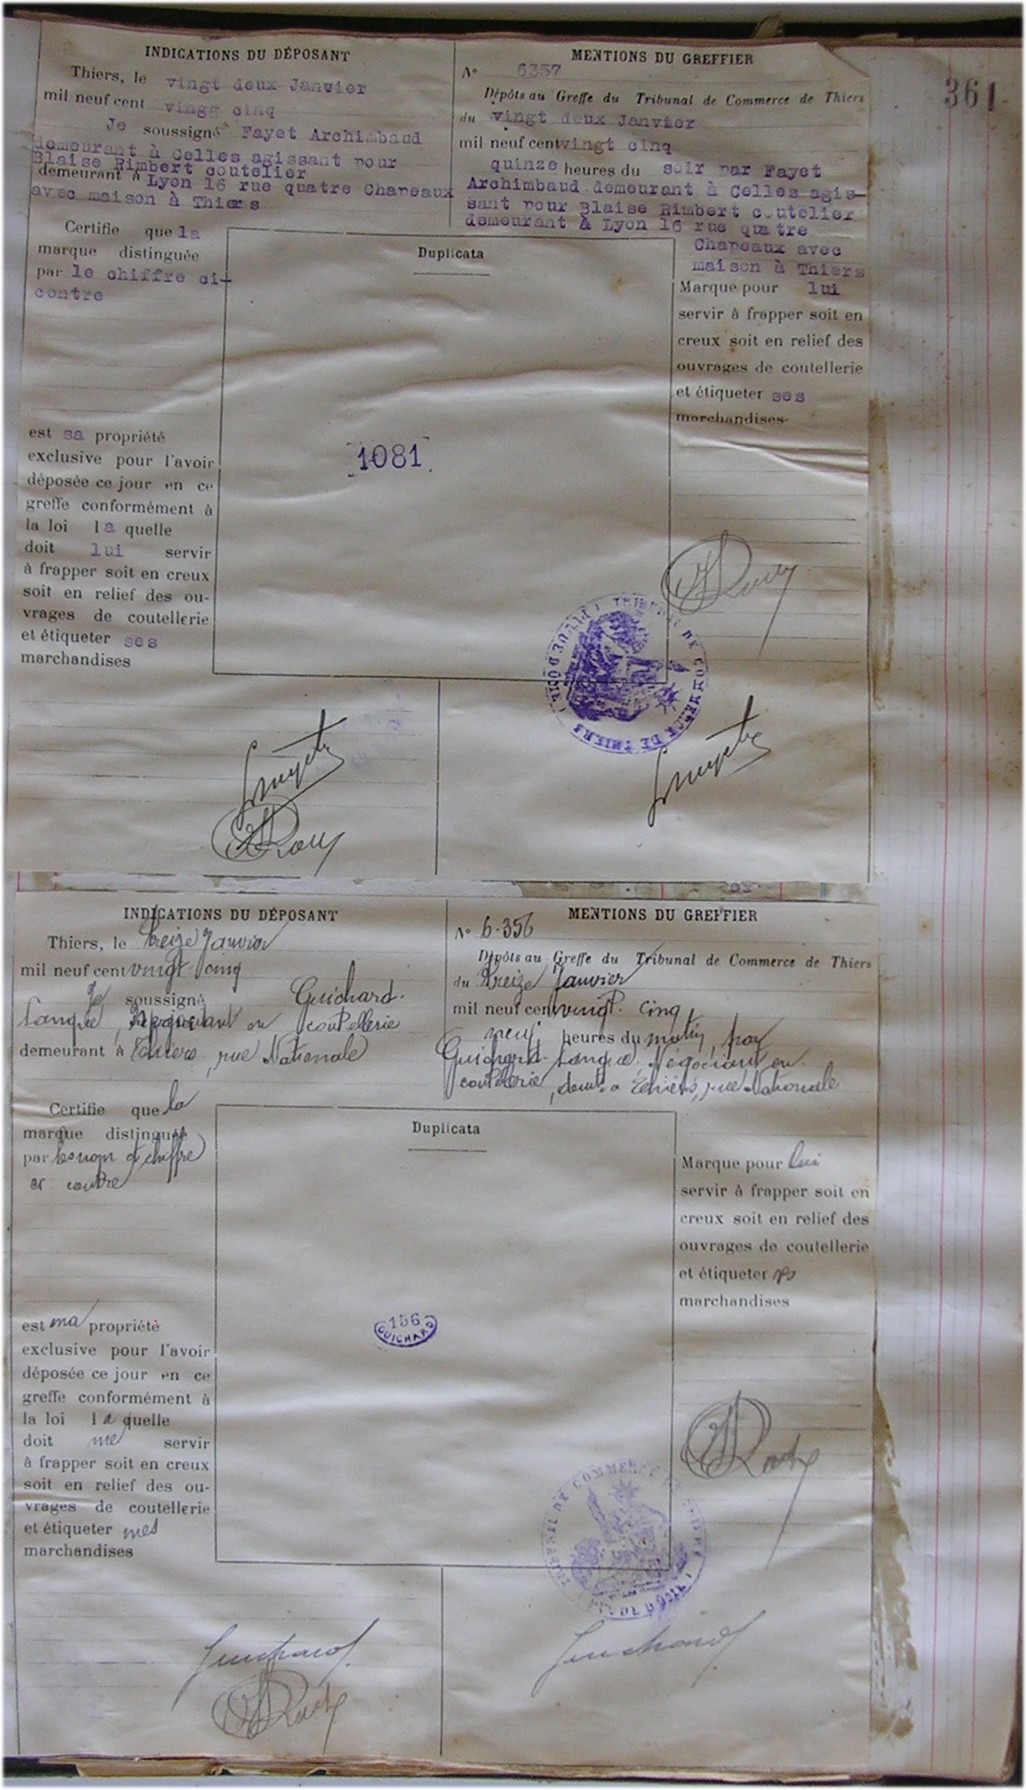 361
INDICATIONS DU DÉPOSANT
Thiers, le vingt deux Janvier
mil neuf cent vingg cinq
Je soussigné Fayet Archimbaud
demeurant à Celles agissant pour
Blaise Rimbert coutelier
demeurant à Lyon 16 rue quatre Chapeaux
avec maison à Thiers
Certifie que la
marque distinguée
par le chiffre ci-
contre
est sa propriété
exclusive pour l'avoir
déposée ce jour en ce
greffe conformément à
la loi la quelle
doit lui servir
à frapper soit en creux
soit en relief des ou-
vrages de coutellerie
et étiqueter ses
marchandises
Duplicata
1081
MENTIONS DU GREFFIER
N° 6357
Dépôts au Greffe du Tribunal de Commerce de Thiers
du vingt deux Janvier
mil neuf cent vingt cinq
quinze heures du soir par Fayet
Archimbaud demeurant à Celles agis-
sant pour Blaise Rimbert coutelier
demeurant à Lyon 16 rue quatre
Chapeaux avec
maison à Thiers
Marque pour lui
servir à frapper soit en
creux soit en relief des
ouvrages de coutellerie
et étiqueter ses
marchandises
TRIBUNAL DE COMMERCE DE THIERS
INDICATIONS DU DÉPOSANT
Thiers, le treize Janvier
mil neuf cent vingt-cinq
Je soussigné Guichard-
Sanque, Négociant en coutellerie
demeurant à Thiers, rue Nationale
Certifie que la
marque distinguée
par le nom et chiffre
ci contre
est ma propriété
exclusive pour l'avoir
déposée ce jour en ce
greffe conformément à
la loi la quelle
doit me servir
à frapper soit en creux
soit en relief des ou-
vrages de coutellerie
et étiqueter mes
marchandises
Duplicata
156
GUICHARD
MENTIONS DU GREFFIER
N° 6-356
Dépôts au Greffe du Tribunal de Commerce de Thiers
du treize Janvier
mil neuf cent vingt cinq
neuf heures du matin, par
Guichard-Sanque, Négociant en
coutellerie, demt à Thiers, rue Nationale
Marque pour lui
servir à frapper soit en
creux soit en relief des
ouvrages de coutellerie
et étiqueter ses
marchandises
TRIBUNAL DE COMMERCE DE THIERS
Guichard
Guichard